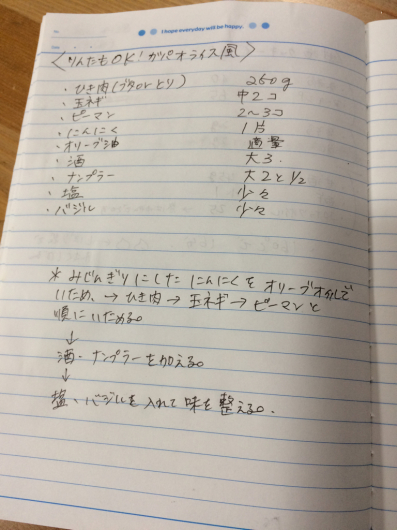 I hope everyday will be happy.
〈りんたもOK!ガパオライス風〉
・ひき肉(ブタorとり) 250g
・玉ネギ 中2コ
・ピーマン 2〜3コ
・にんにく 1片
・オリーブ油 適量
・酒 大3.
・ナンプラー 大2と1/2
・塩 少々
・バジル 少々
* みじんぎりにしたにんにくをオリーブオイルで
いため、→ひき肉→玉ネギ→ピーマンと
順にいためる。
↓
酒・ナンプラーを加える。
↓
塩・バジルを入れて味を整える。